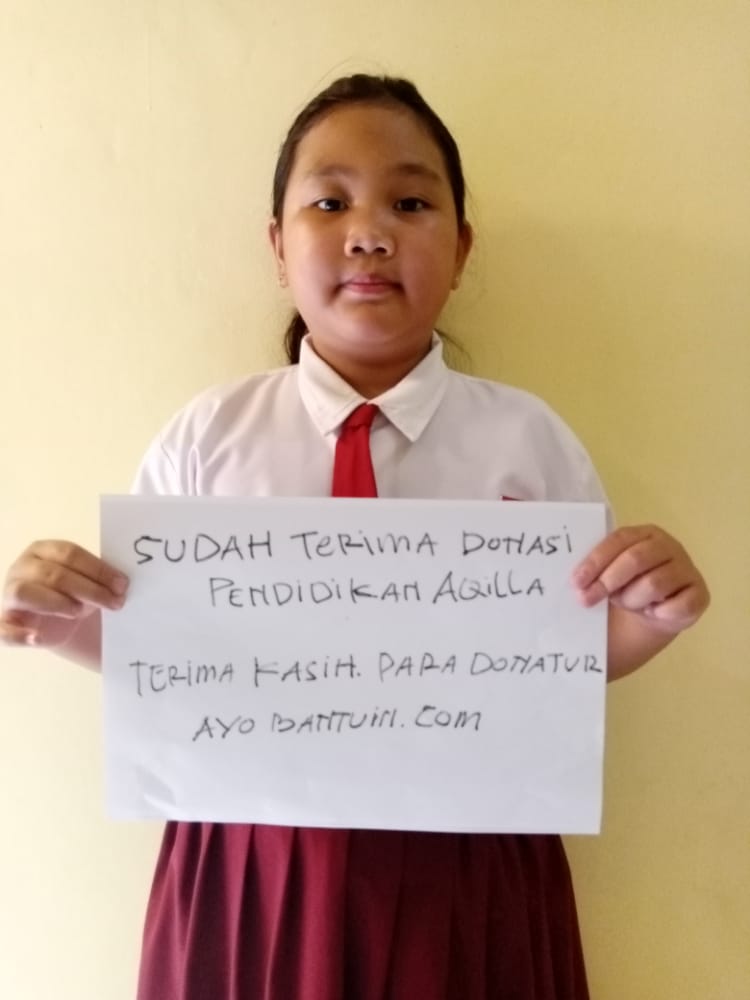 SUDAH TERIMA DONASI
PENDIDIKAN AQILLA
TERIMA KASIH. PARA DONATUR
AYO BANTUIN. COM